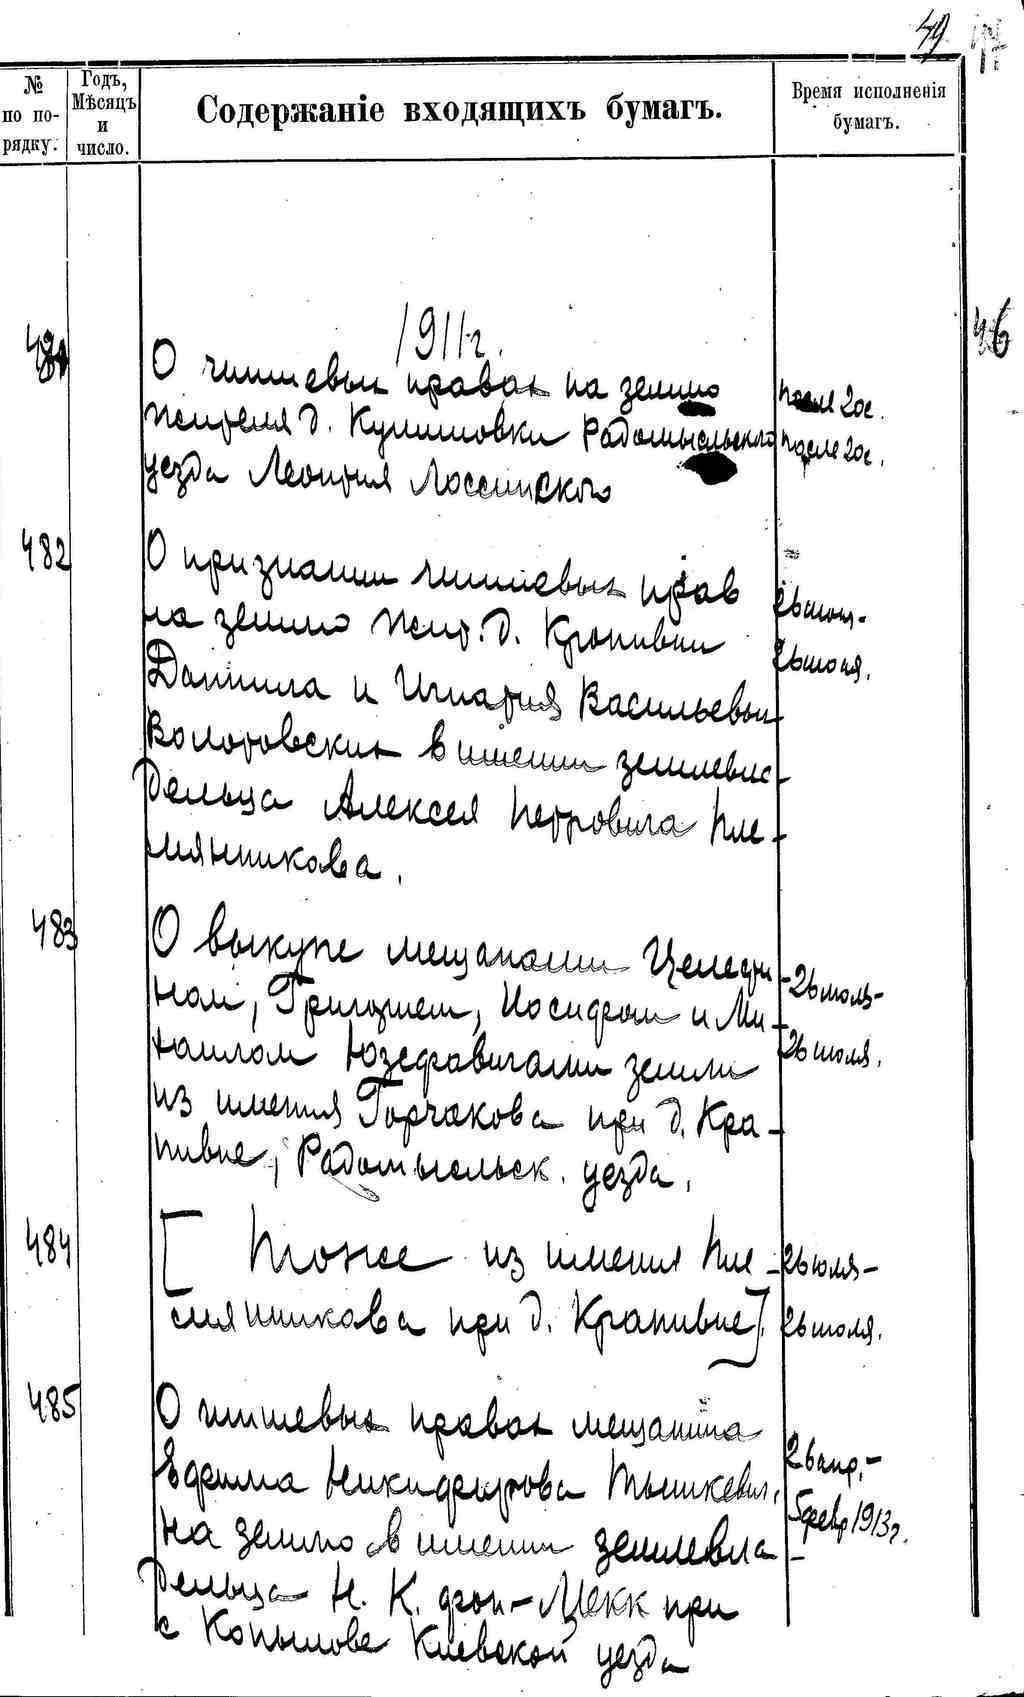 49
№ по порядку.
Годъ, Мѣсяцъ и число.
Содержаніе входящихъ бумагъ.
Время исполненія бумагъ.
46
1911 г.
481
О чиншевых правах на землю
жителя д. Радомысльского
уезда Леонтия Лосинского
после 20с.
после 20с.
482
О признании чиншевых прав
на землю жит. д. Кропивни
Даниила и Игнатия Васильевых
Вологовских в имении землевла-
дельца Алексея Петровича Пле-
мянникова.
26 июля-
26 июля.
483
О выкупе мещанами Целести
ном, Григорием, Иосифом и Ми-
хаилом Юзефавичами земли
из имения Горчакова при д. Кра-
пивне, Радомысльск. уезда.
-26 июля-
26 июля.
484
[Тоже из имения Пле-
мянникова при д. Крапивне].
26 юля-
26 июля.
485
О чиншевых правах мещанина
Ефима Никифорова Тышкевич.
на землю в имении землевла
дельца Н. К. фон-Мекк при
с Копылове Киевской уезда
26 апр.-
5 февр 1913 г.